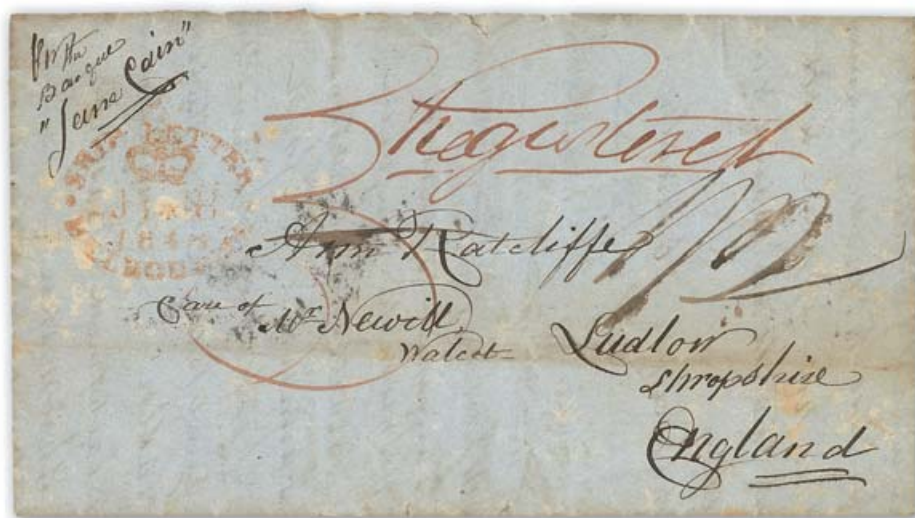 Per the
Barque
"Jane Cain"
SHIP LETTER
3 Registered
Ann Ratcliffe
Care of
Mr Newill
Walcot
Ludlow
Shropshire
England